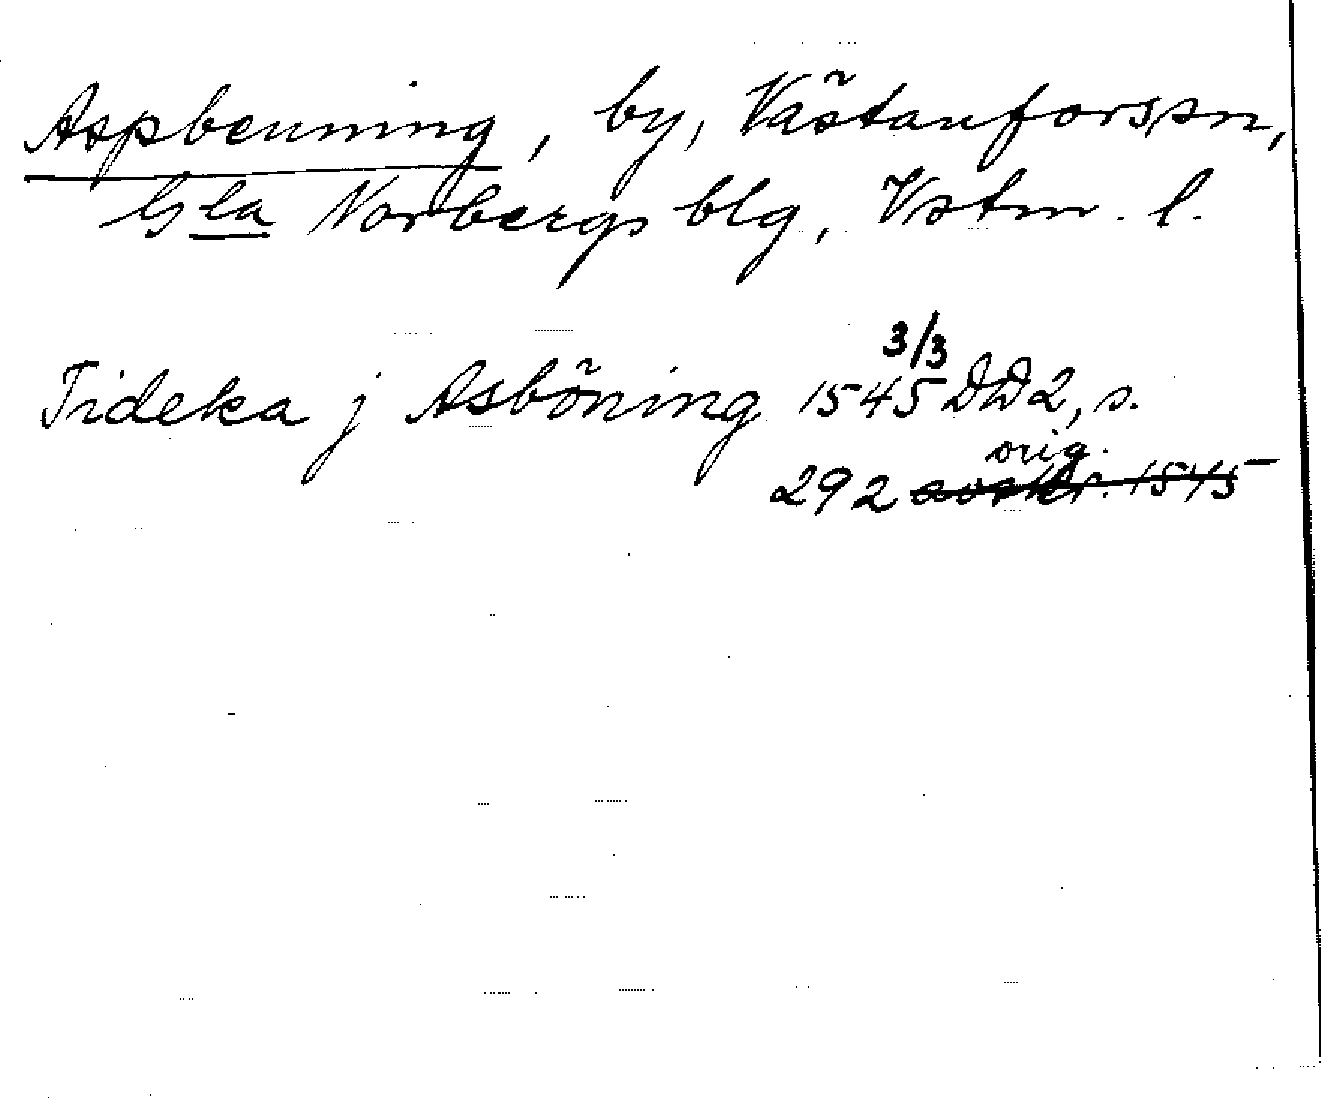 Aspbenning, by, Västanforssn,
Gla Norbergs blg, Vstm. l.
3/3
Tideka j Asböning 1545 DD2, s.
orig.
292 avskr. 1545